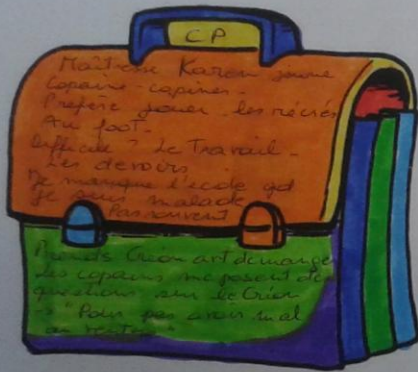 CP
Maîtresse Karen jeune
Copains - copines.
Préfère jouer. les récrés
Au foot.
Difficile ? Le Travail.
Les devoirs.
Je manque l'école qd
je suis malade
Pas souvent
Prends Créon avt de manger
Les copains me posent des
questions sur le Créon
"Pour pas avoir mal
au ventre"